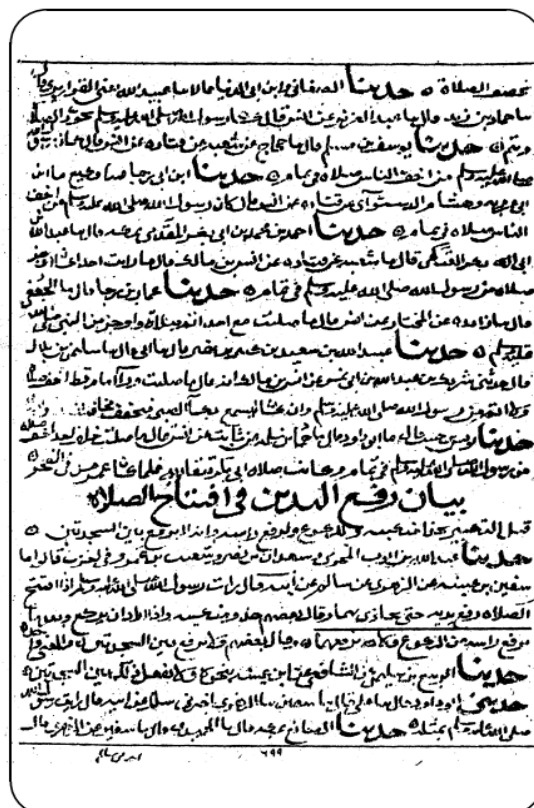 حدثنا الصغاني وابن ابي الدنيا قالا ثنا عبيد الله
حماد بن زيد قال ثنا عبد العزيز عن انس قال كان رسول الله صلى الله عليه وسلم الصلاة
ويتم حدثنا يوسف بن مسلم قال ثنا حجاج عن شعبة عن قتادة عن انس قال كان
صلى الله عليه وسلم من اخف الناس صلاة في تمام حدثنا ابن ابي رجا
وهشام الدستوائي عن قتادة عن انس قال كان رسول الله صلى الله عليه وسلم من اخف
الناس صلاة في تمام حدثنا احمد بن محمد بن ابي بكر المقدمي
قال ثنا شعبة عن قتادة عن انس بن مالك قال ما رايت احدا
صلاة من رسول الله صلى الله عليه وسلم في تمام حدثنا عمار بن رجا قال ثنا
قال ثنا زائدة عن المختار عن انس قال ما صليت مع احد صلاة واوجز من النبي صلى الله
عليه وسلم حدثنا عبيد الله بن سعيد بن كثير بن عفير قال ثنا ابي قال ثنا سليمن بن بلال
قال حدثني شريك بن عبد الله بن ابي نمر عن انس بن مالك انه قال ما صليت ورا امام قط اخف صلاة
ولا اتم من رسول الله صلى الله عليه وسلم وان كان ليسمع بكا الصبي فيخفف مخافة
حدثنا يونس بن حبيب قال ثنا ابو داود قال ثنا حماد بن سلمة عن ثابت عن انس قال ما صليت خلف احد اخف
من رسول الله صلى الله عليه وسلم في تمام وكانت صلاة ابي بكر متقاربة فلما كان عمر مد في الفجر
بيان رفع اليدين في افتتاح الصلاة
قبل التكبير بحذا منكبيه وللركوع ولرفع راسه وانه لا يرفع بين السجدتين
حدثنا عبد الله بن ايوب المخرمي وسعدان بن نصر وشعيب بن عمرو في اخرين قالوا ثنا
سفين بن عيينة عن الزهري عن سالم عن ابيه قال رايت رسول الله صلى الله عليه وسلم اذا افتتح
الصلاة رفع يديه حتى يحاذي بهما وقال بعضهم حذو منكبيه واذا اراد ان يركع وبعد ما
يرفع راسه من الركوع ولا يرفعهما وقال بعضهم ولا يرفع بين السجدتين والمعنى واحد
حدثنا الربيع بن سليمن عن الشافعي عن ابن عيينة بنحوه ولا يفعل ذلك بين السجدتين
حدثني ابو داود قال ثنا علي قال ثنا سفين ثنا الزهري اخبرني سالم عن ابيه قال رايت رسول الله
صلى الله عليه وسلم بمثله حدثنا الصائغ بمكة قال ثنا الحميدي قال ثنا سفين عن الزهري قال
٦٩٩